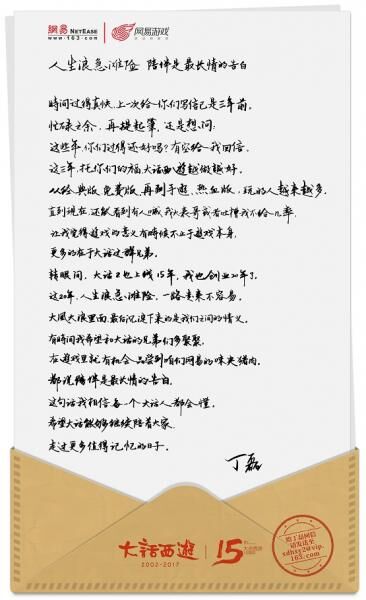 網易 NETEASE
www.163.com
网易游戏
人生浪急滩险 陪伴是最长情的告白
时间过得真快,上一次给你们写信已是三年前。
忙碌之余,再提起笔,还是想问:
这些年,你们过得还好吗?有空给我回信。
这三年,托你们的福,大话西游越做越好。
从经典版、免费版,再到手游、热血版,玩的人越来越多。
直到现在,还能看到有人喊我大表哥或者吐槽我不给几率,
让我觉得游戏的意义有时候不止于游戏本身,
更多的在于大话这群兄弟。
转眼间,大话2也上线15年,我也创业20年了。
这20年,人生浪急滩险,一路走来不容易。
大风大浪里面,最后沉淀下来的是我们之间的情义。
有时间我希望和大话的兄弟们多聚聚。
在游戏里就有机会品尝到咱们网易的味央猪肉。
都说陪伴是最长情的告白。
这句话我相信每一个大话人都会懂。
希望大话能够继续陪着大家
走过更多值得记忆的日子。
丁磊
大话西游
2002-2017
15
给丁磊回信
请发送至
xdhxy2@vip.
163.com